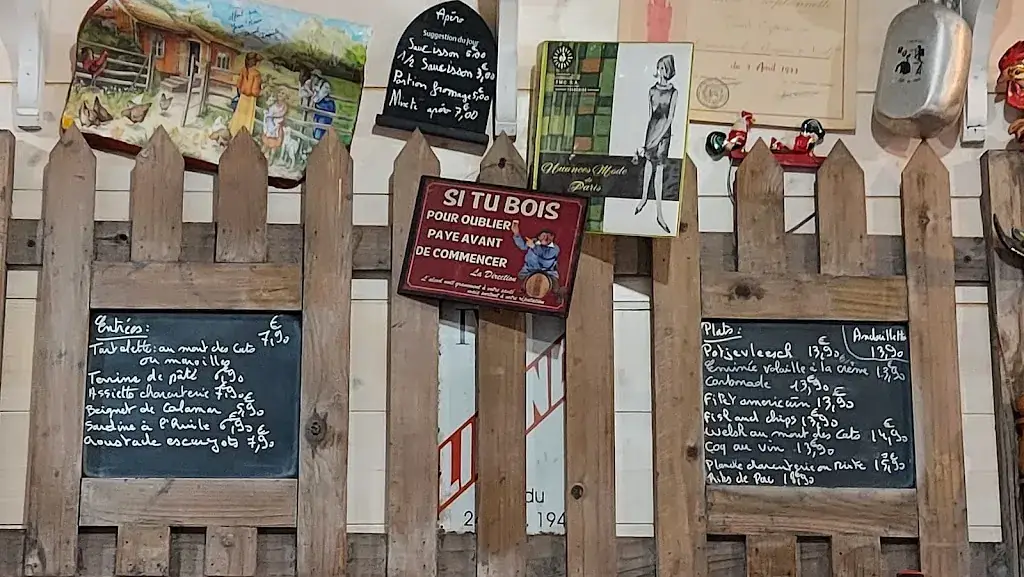 Apéro
Suggestion du jour
Saucisson 6,00
1/2 Saucisson 3,00
Portion fromage 5,00
Mixte apéro 7,00
€
du 7 Avril 1977
Nuances Mode
de
Paris
SI TU BOIS
POUR OUBLIER
PAYE AVANT
DE COMMENCER
La Direction
L'alcool nuit gravement à votre santé
mais surtout à votre réputation
Entrées : €
Tartelette au mont des Cats 7,90
ou maroilles
Terrine de pâté 6,90
Assiette charcuterie 7,90
Beignet de Calamar 5,90
Sardine à l'huile 6,90
Croustade escargots 7,90
Plats :
Andouillette
13,90
Potjevleesch 13,90
Emincé volaille à la crème 13,90
Carbonade 13,90
Filet américain 13,90
Fish and chips 13,90
Welsh au mont des Cats 14,90
Coq au vin 13,90
Planche charcuterie ou Mixte 15,90
Ribs de Porc
du
194